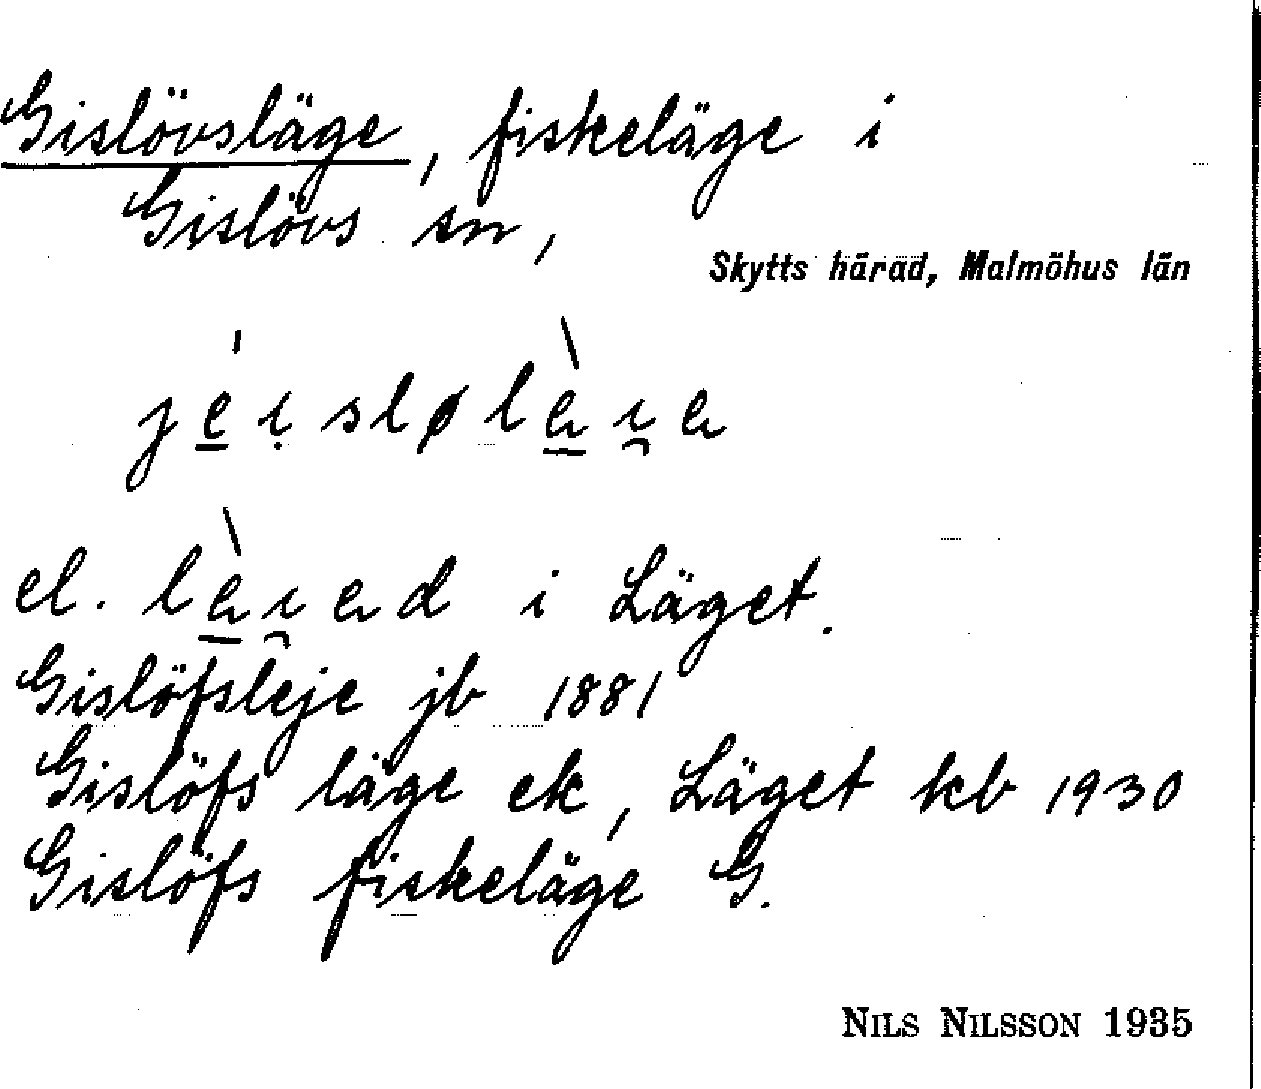 Gislövsläge, fiskeläge i
Gislövs sn,
Skytts härad, Malmöhus län
el. i Läget.
Gislöfsleje jb 1881
Gislöfs läge ek, Läget kb 1930
Gislöfs fiskeläge G.
NILS NILSSON 1935